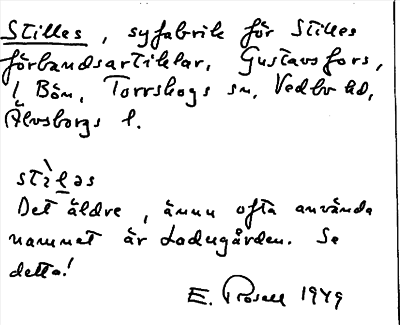 Stilles, syfabrik för Stilles
förbandsartiklar, Gustavsfors,
i Bön, Torrskogs sn, Vedbo hd,
Älvsborgs l.
stìləs
Det äldre, ännu ofta använda
namnet är Ladugården. Se
detta!
E. Rosell 1949